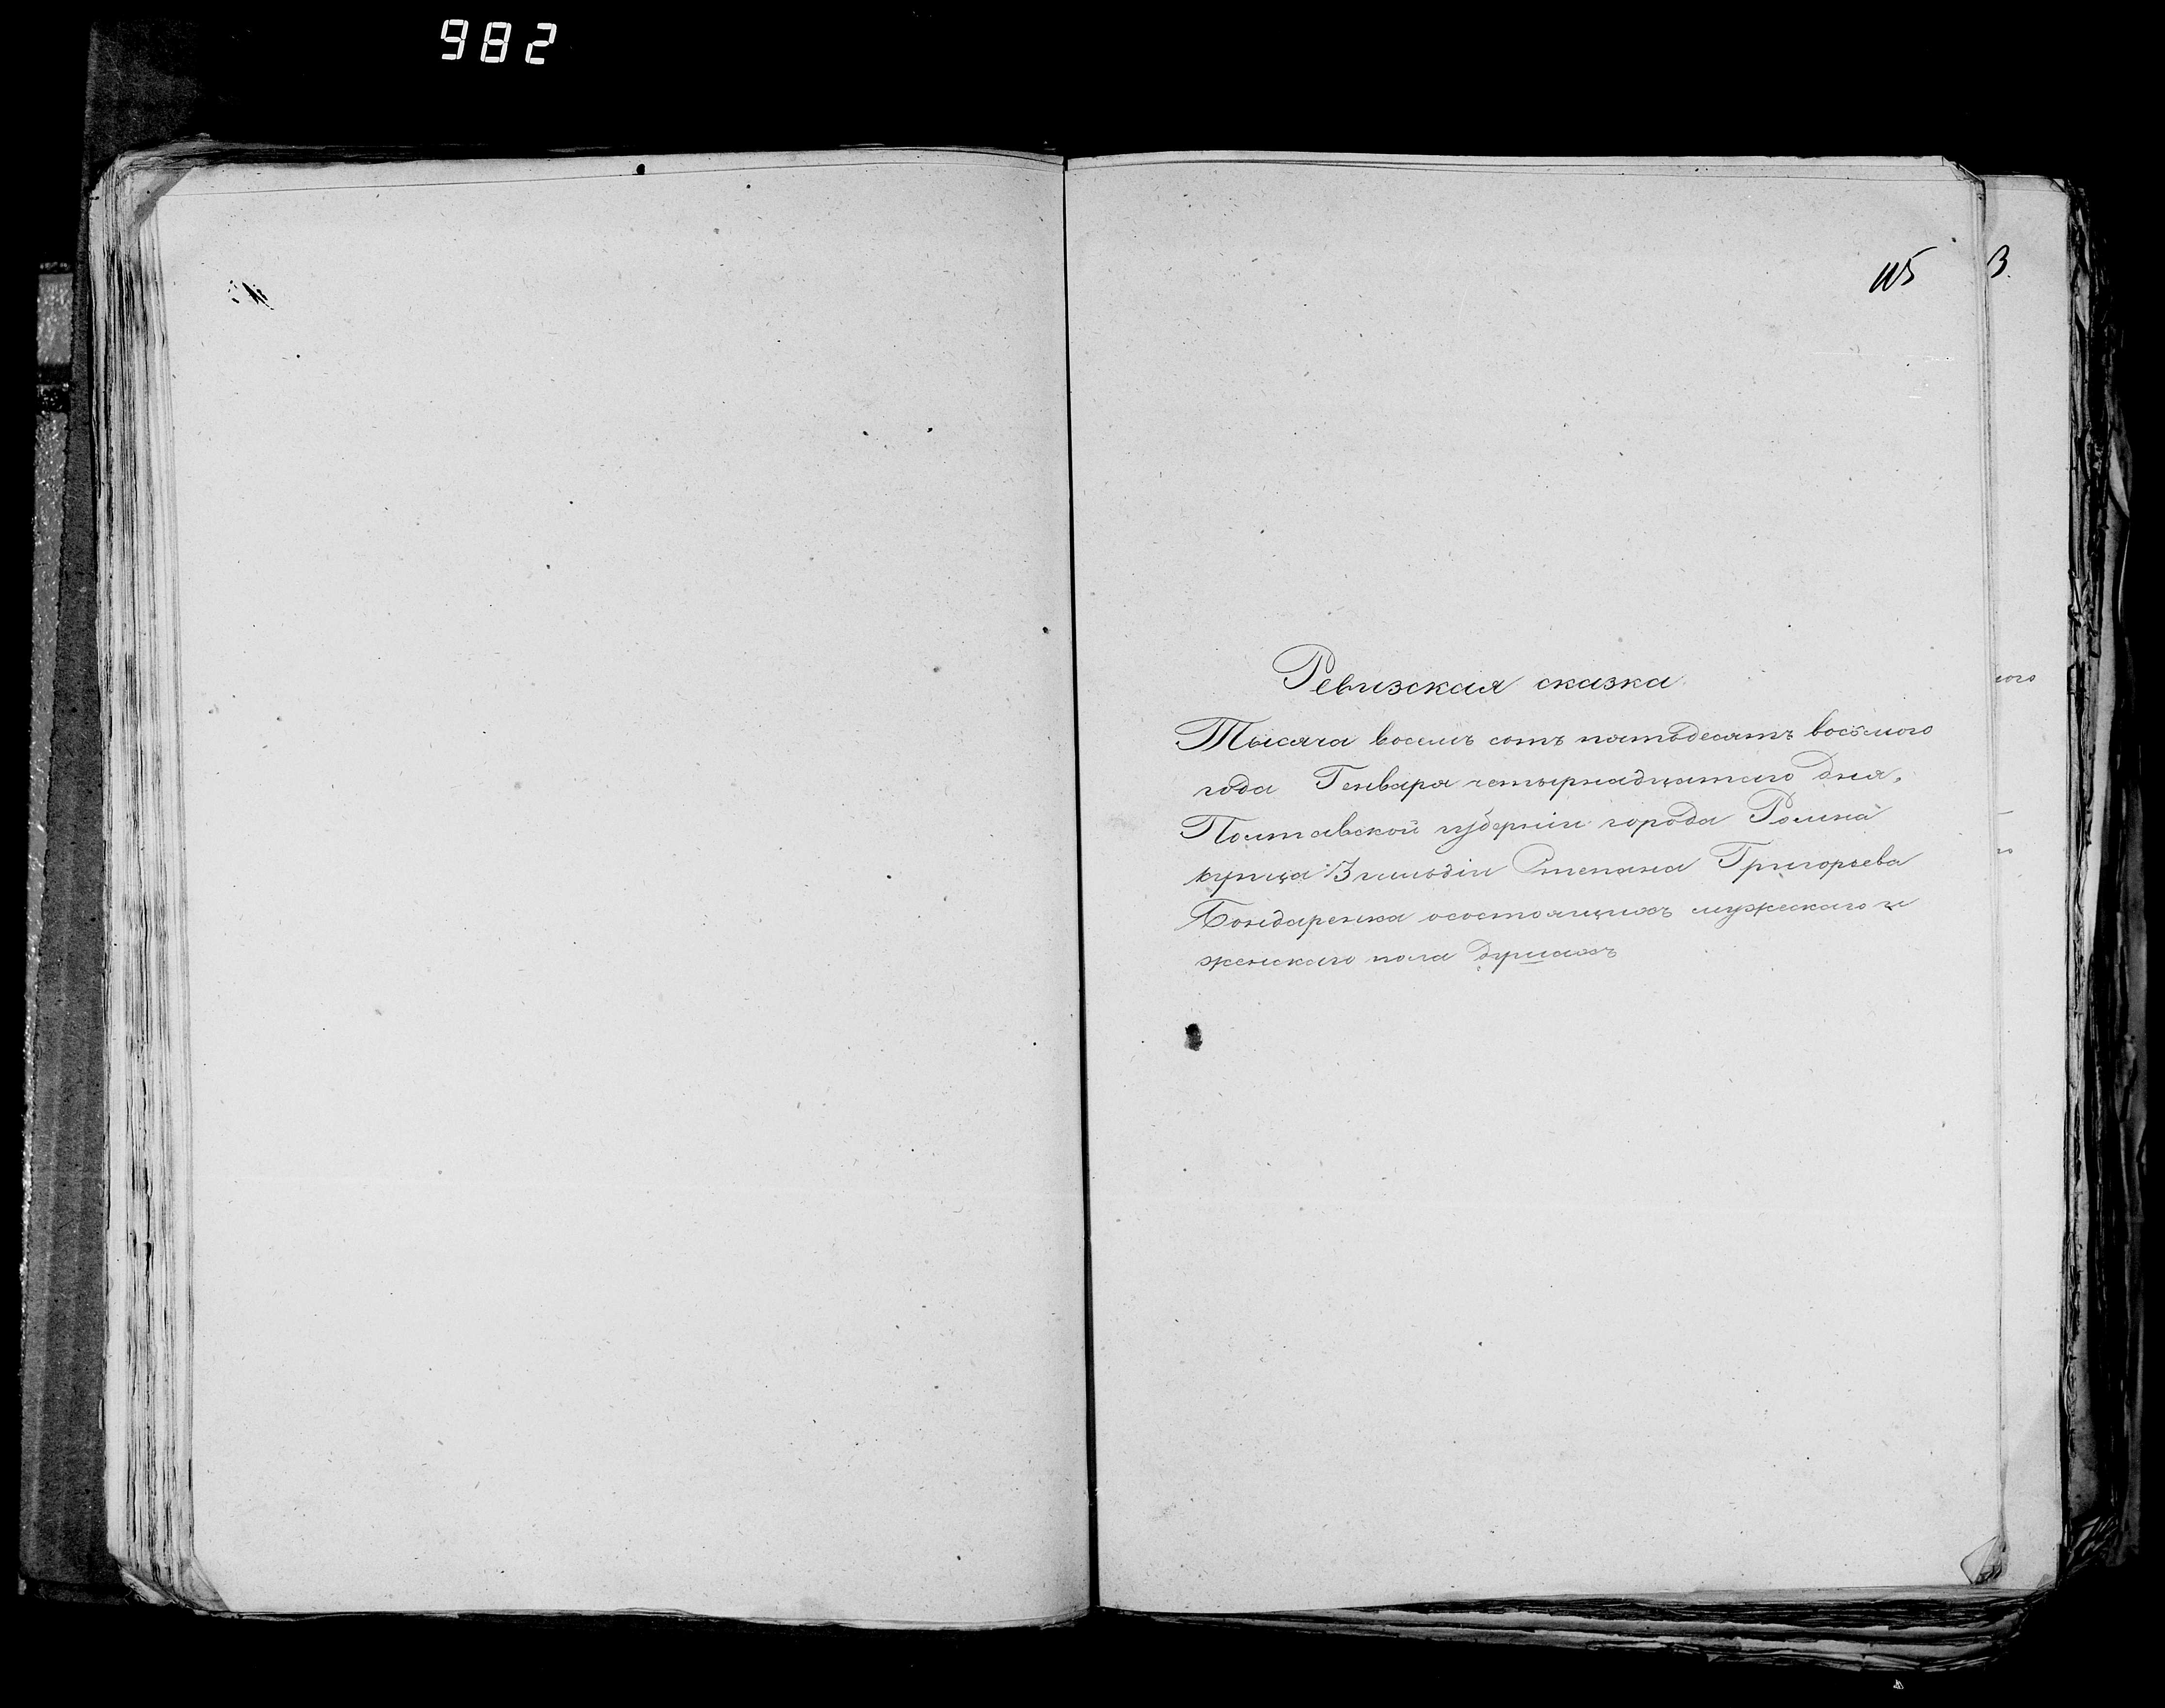 982
115
3.
Ревизская сказка
Тысяча восемь сотъ пятьдесятъ восьмого
года Генваря четырнадцатаго дня,
Полтавской губерніи города Ромна
купца 3 гильдіи Степана Григорьева
Бондаренка осостоящихъ мужескаго и
женскаго пола душахъ